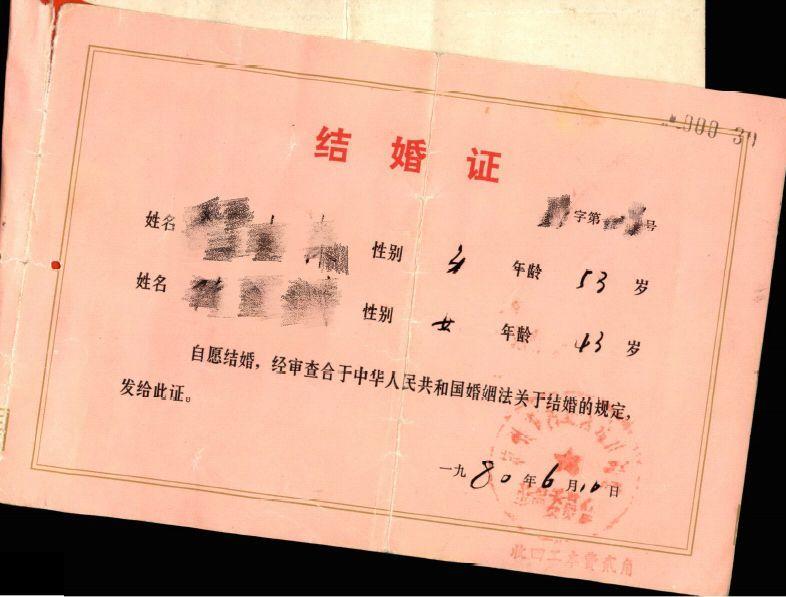 000 30
结婚证
字第 号
姓名 性别 男 年龄 53 岁
姓名 性别 女 年龄 43 岁
自愿结婚，经审查合于中华人民共和国婚姻法关于结婚的规定，
发给此证。
一九80年6月10日
收回工本费贰角